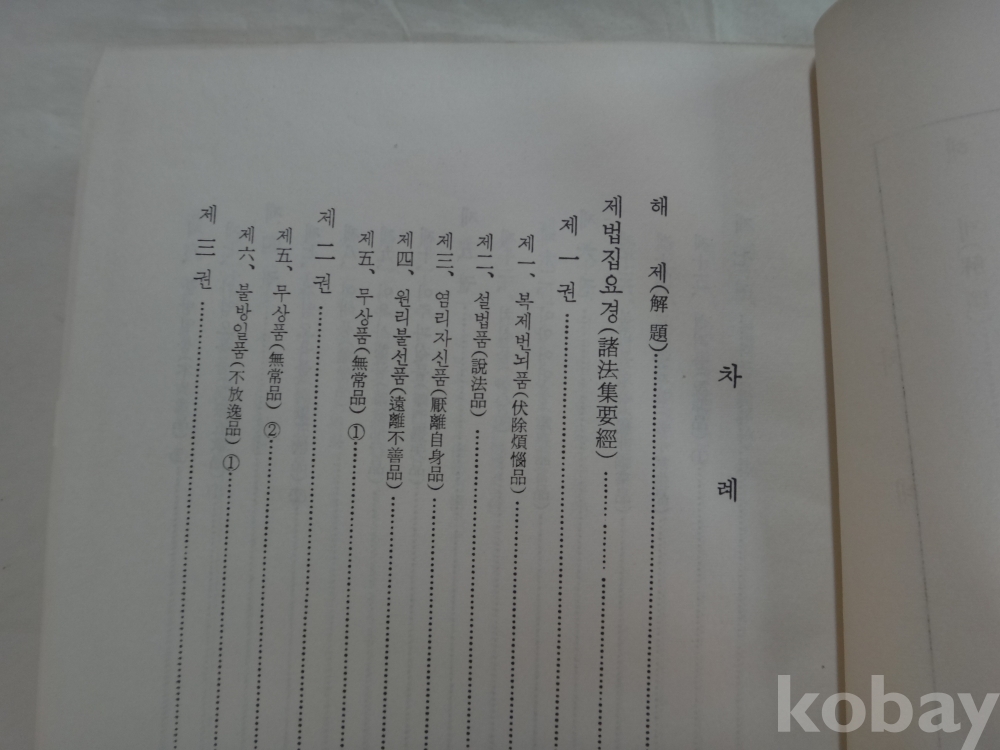 차 례
해 제(解題)
제법집요경(諸法集要經)
제 一 권
제一、 복제번뇌품(伏除煩惱品)
제二、 설법품(說法品)
제三、 염리자신품(厭離自身品)
제四、 원리불선품(遠離不善品)
제五、 무상품(無常品) ①
제 二 권
제五、 무상품(無常品) ②
제六、 불방일품(不放逸品) ①
제 三 권
kobay